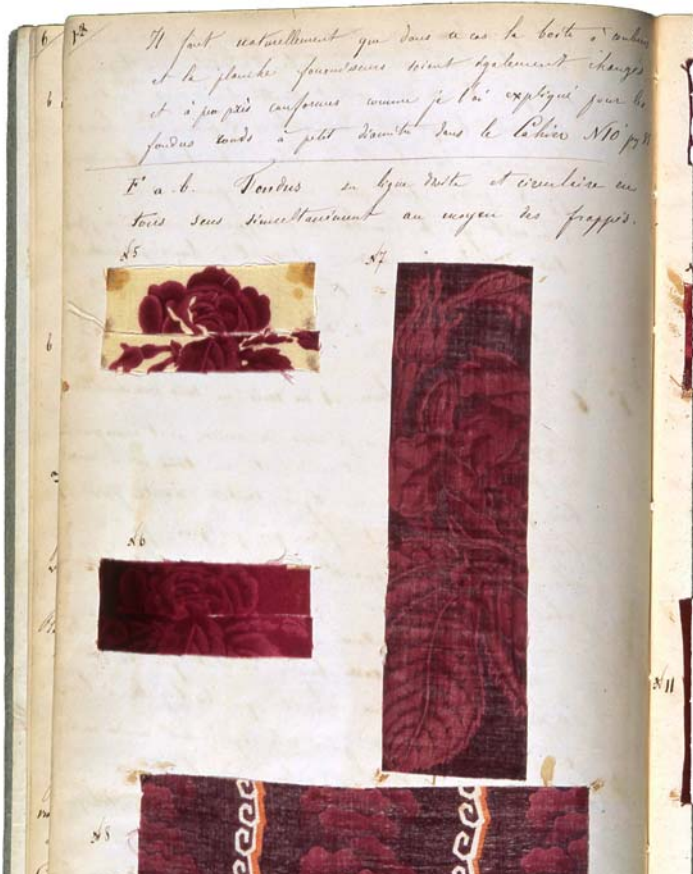 12
Il faut naturellement que dans ce cas la boîte à couleurs
et la planche fournisseurs soient également changés
et à peu près conformes comme je l'ai expliqué pour les
fondus ronds à petit diamètre dans le Cahier N10 pg
F a b. Fondus en ligne droite et circulaire en
tous sens simultanément au moyen des frappés.
N5
N7
N6
N11
N8